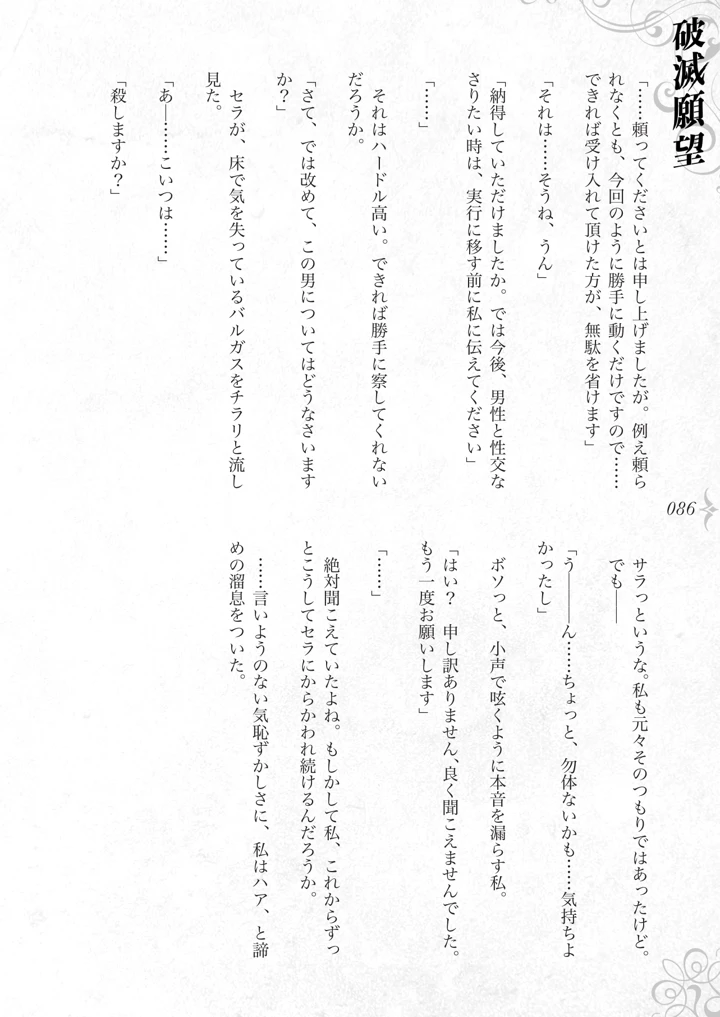 破滅願望
「……頼ってくださいとは申し上げましたが。例え頼ら
れなくとも、今回のように勝手に動くだけですので……
できれば受け入れて頂けた方が、無駄を省けます」
「それは……そうね、うん」
「納得していただけましたか。では今後、男性と性交な
さりたい時は、実行に移す前に私に伝えてください」
「……」
それはハードル高い。できれば勝手に察してくれない
だろうか。
「さて、では改めて、この男についてはどうなさいます
か？」
セラが、床で気を失っているバルガスをチラリと流し
見た。
「あ――……こいつは……」
「殺しますか？」
サラっというな。私も元々そのつもりではあったけど。
でも――
「う――ん……ちょっと、勿体ないかも……気持ちよ
かったし」
ボソっと、小声で呟くように本音を漏らす私。
「はい？　申し訳ありません、良く聞こえませんでした。
もう一度お願いします」
「……」
絶対聞こえていたよね。もしかして私、これからずっ
とこうしてセラにからかわれ続けるんだろうか。
……言いようのない気恥ずかしさに、私はハア、と諦
めの溜息をついた。
086